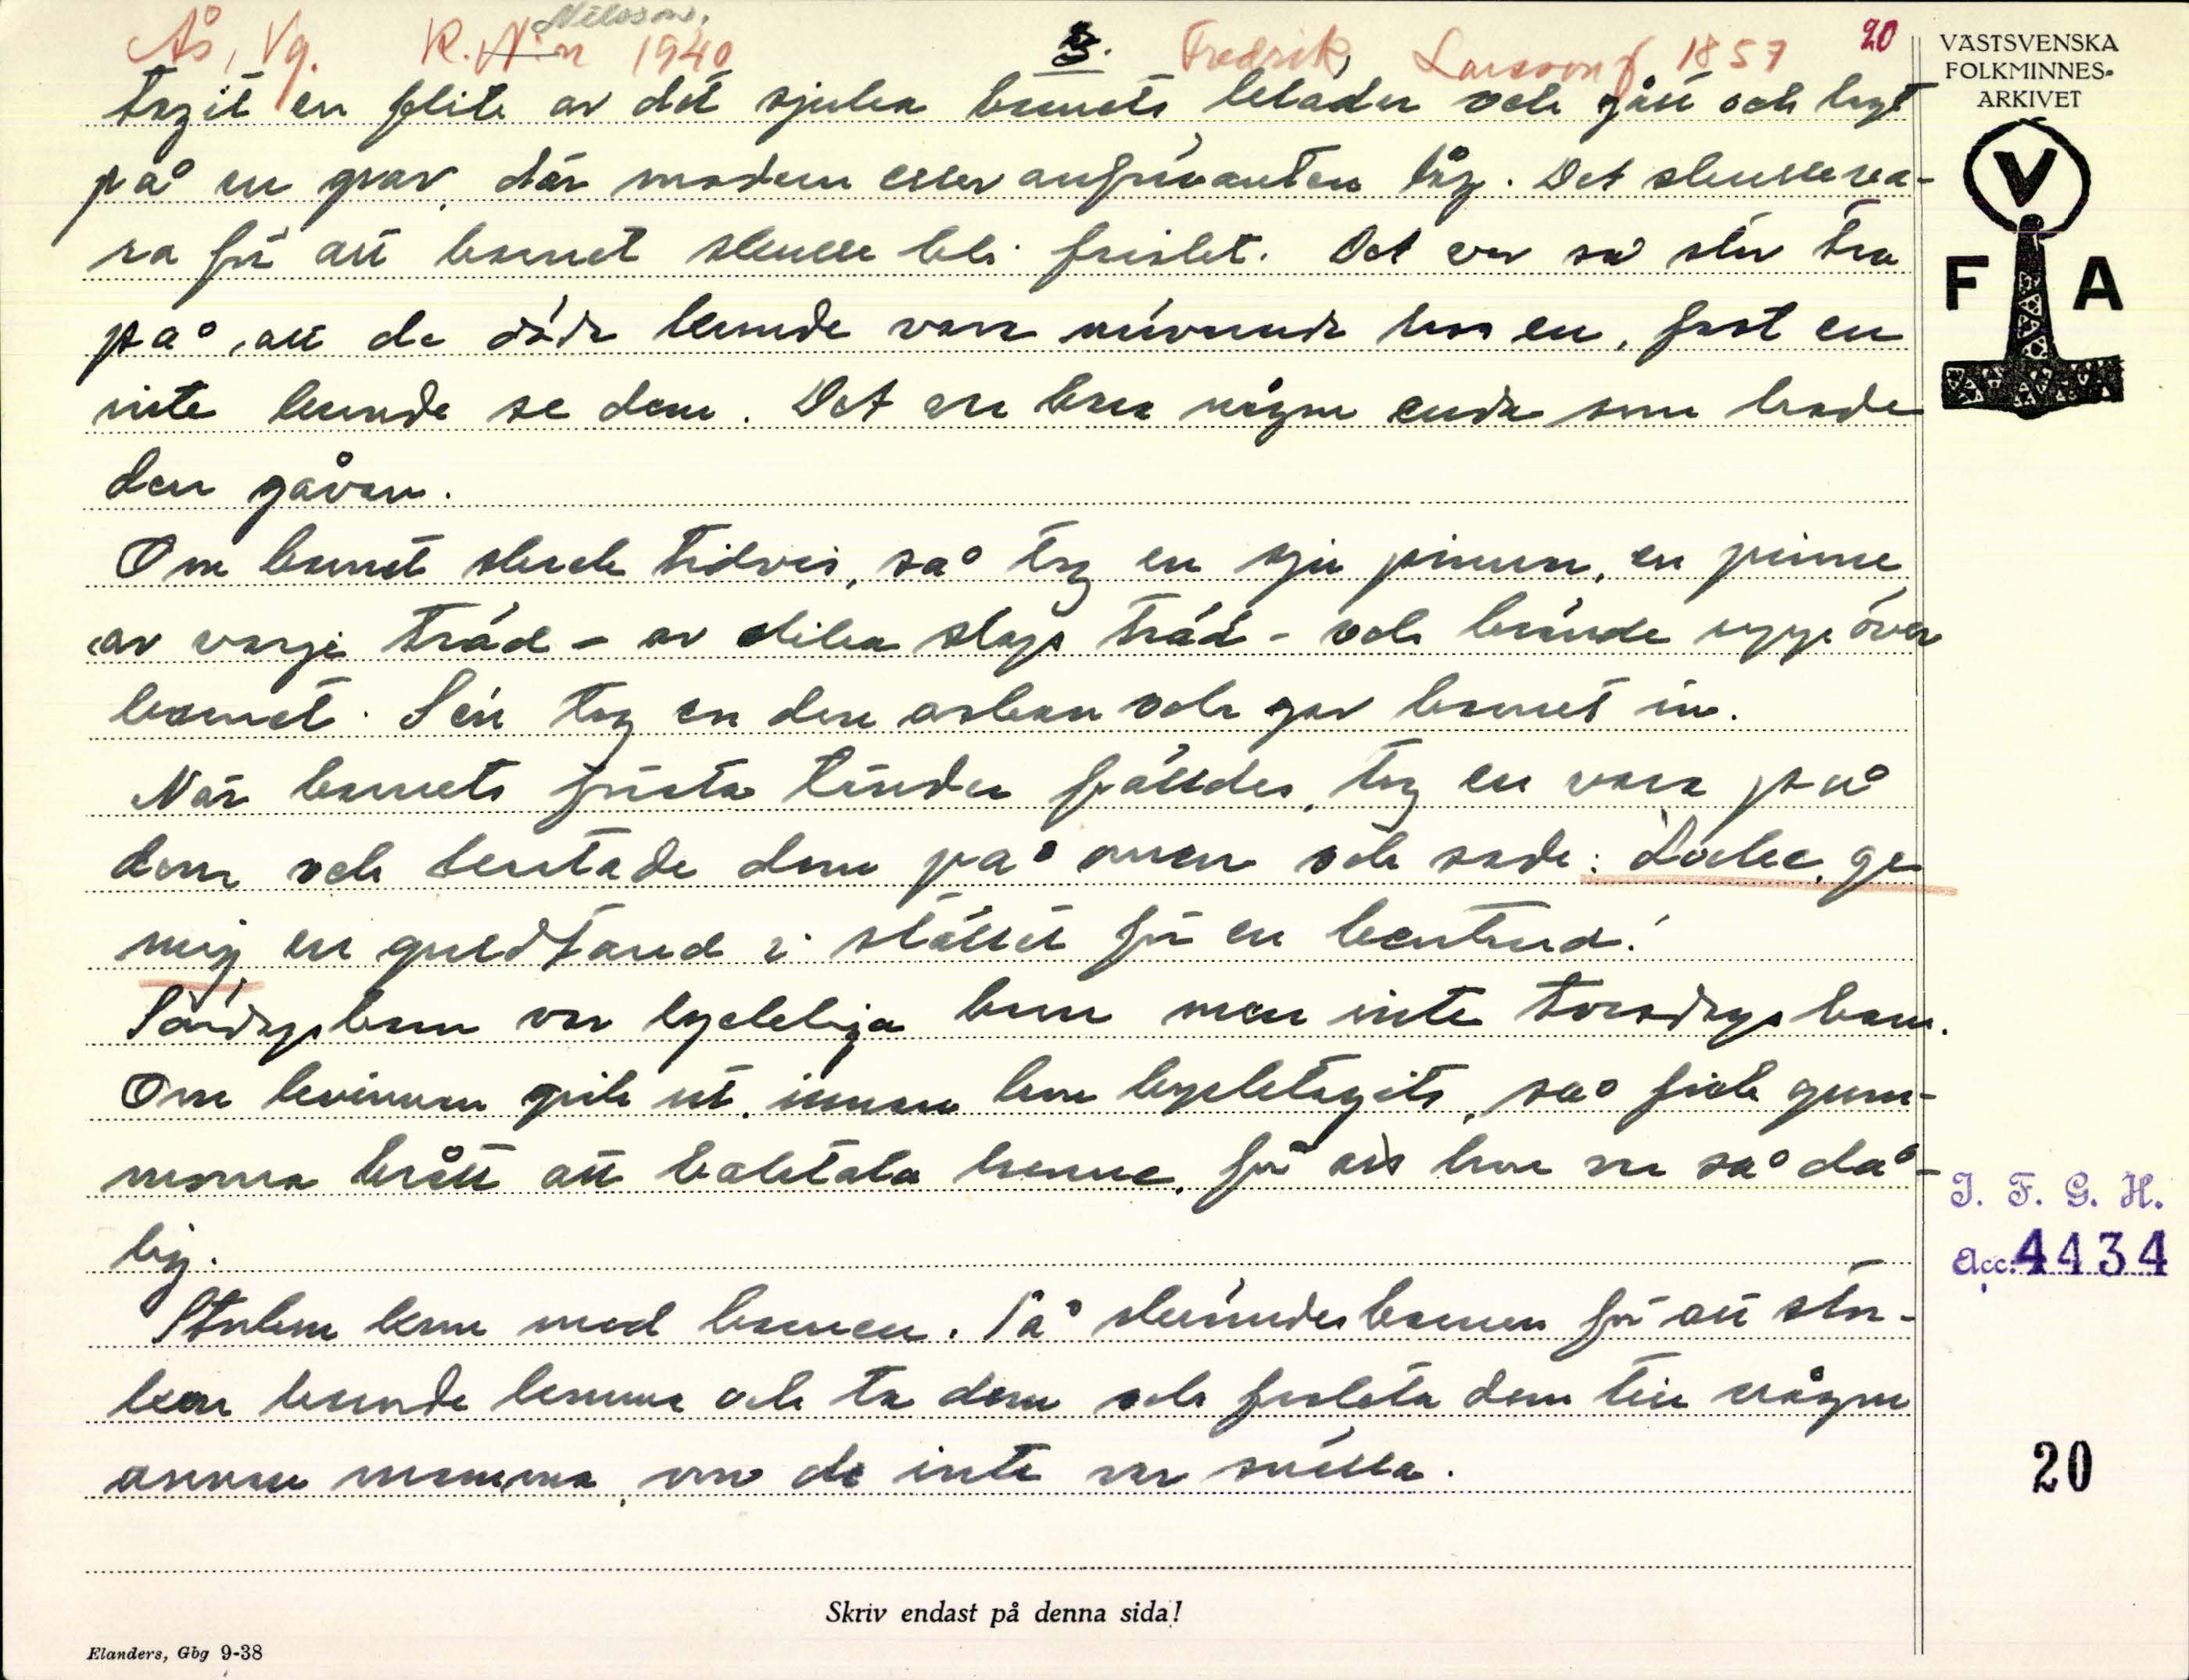 Ås, Vg. K. N-n Nilsson, 1940 3. Fredrik Larsson f 1857 20
tagit en flik av det sjuka barnets kläder och gått och lagt
på en grav, där modern eller anförvanten låg. Det skulle va-
ra för att barnet skulle bli friskt. Det var så stor tro
på, att de döda kunde vara närvarande hos en, fast en
inte kunde se dem. Det var bara några enda som hade
den gåvan.
Om barnet skrek tidvis, så tog en sju pinnar, en pinne
av varje träd - av olika slags träd - och brände uppe över
barnet. Sen tog en den askan och gav barnet in.
När barnets första tänder fälldes, tog en vara på
dem och kastade dem på muren och sade: Locke, ge
mig en guldtand i stället för en bentand!
Söndagsbarn var lyckliga barn men inte torsdagsbarn.
Om kvinnan gick ut innan hon kyrktagits, så fick gum-
morna brått att baktala henne, för att hon var så då-
lig.
Storken kom med barnen. Så skrämdes barnen för att stor-
ken kunde komma och ta dem och frakta dem till någon
annan mamma, om de inte var snälla.
Skriv endast på denna sida!
Elanders, Gbg 9-38
VÄSTSVENSKA
FOLKMINNES-
ARKIVET
V
F A
I. F. G. H.
Acc. 4434
20